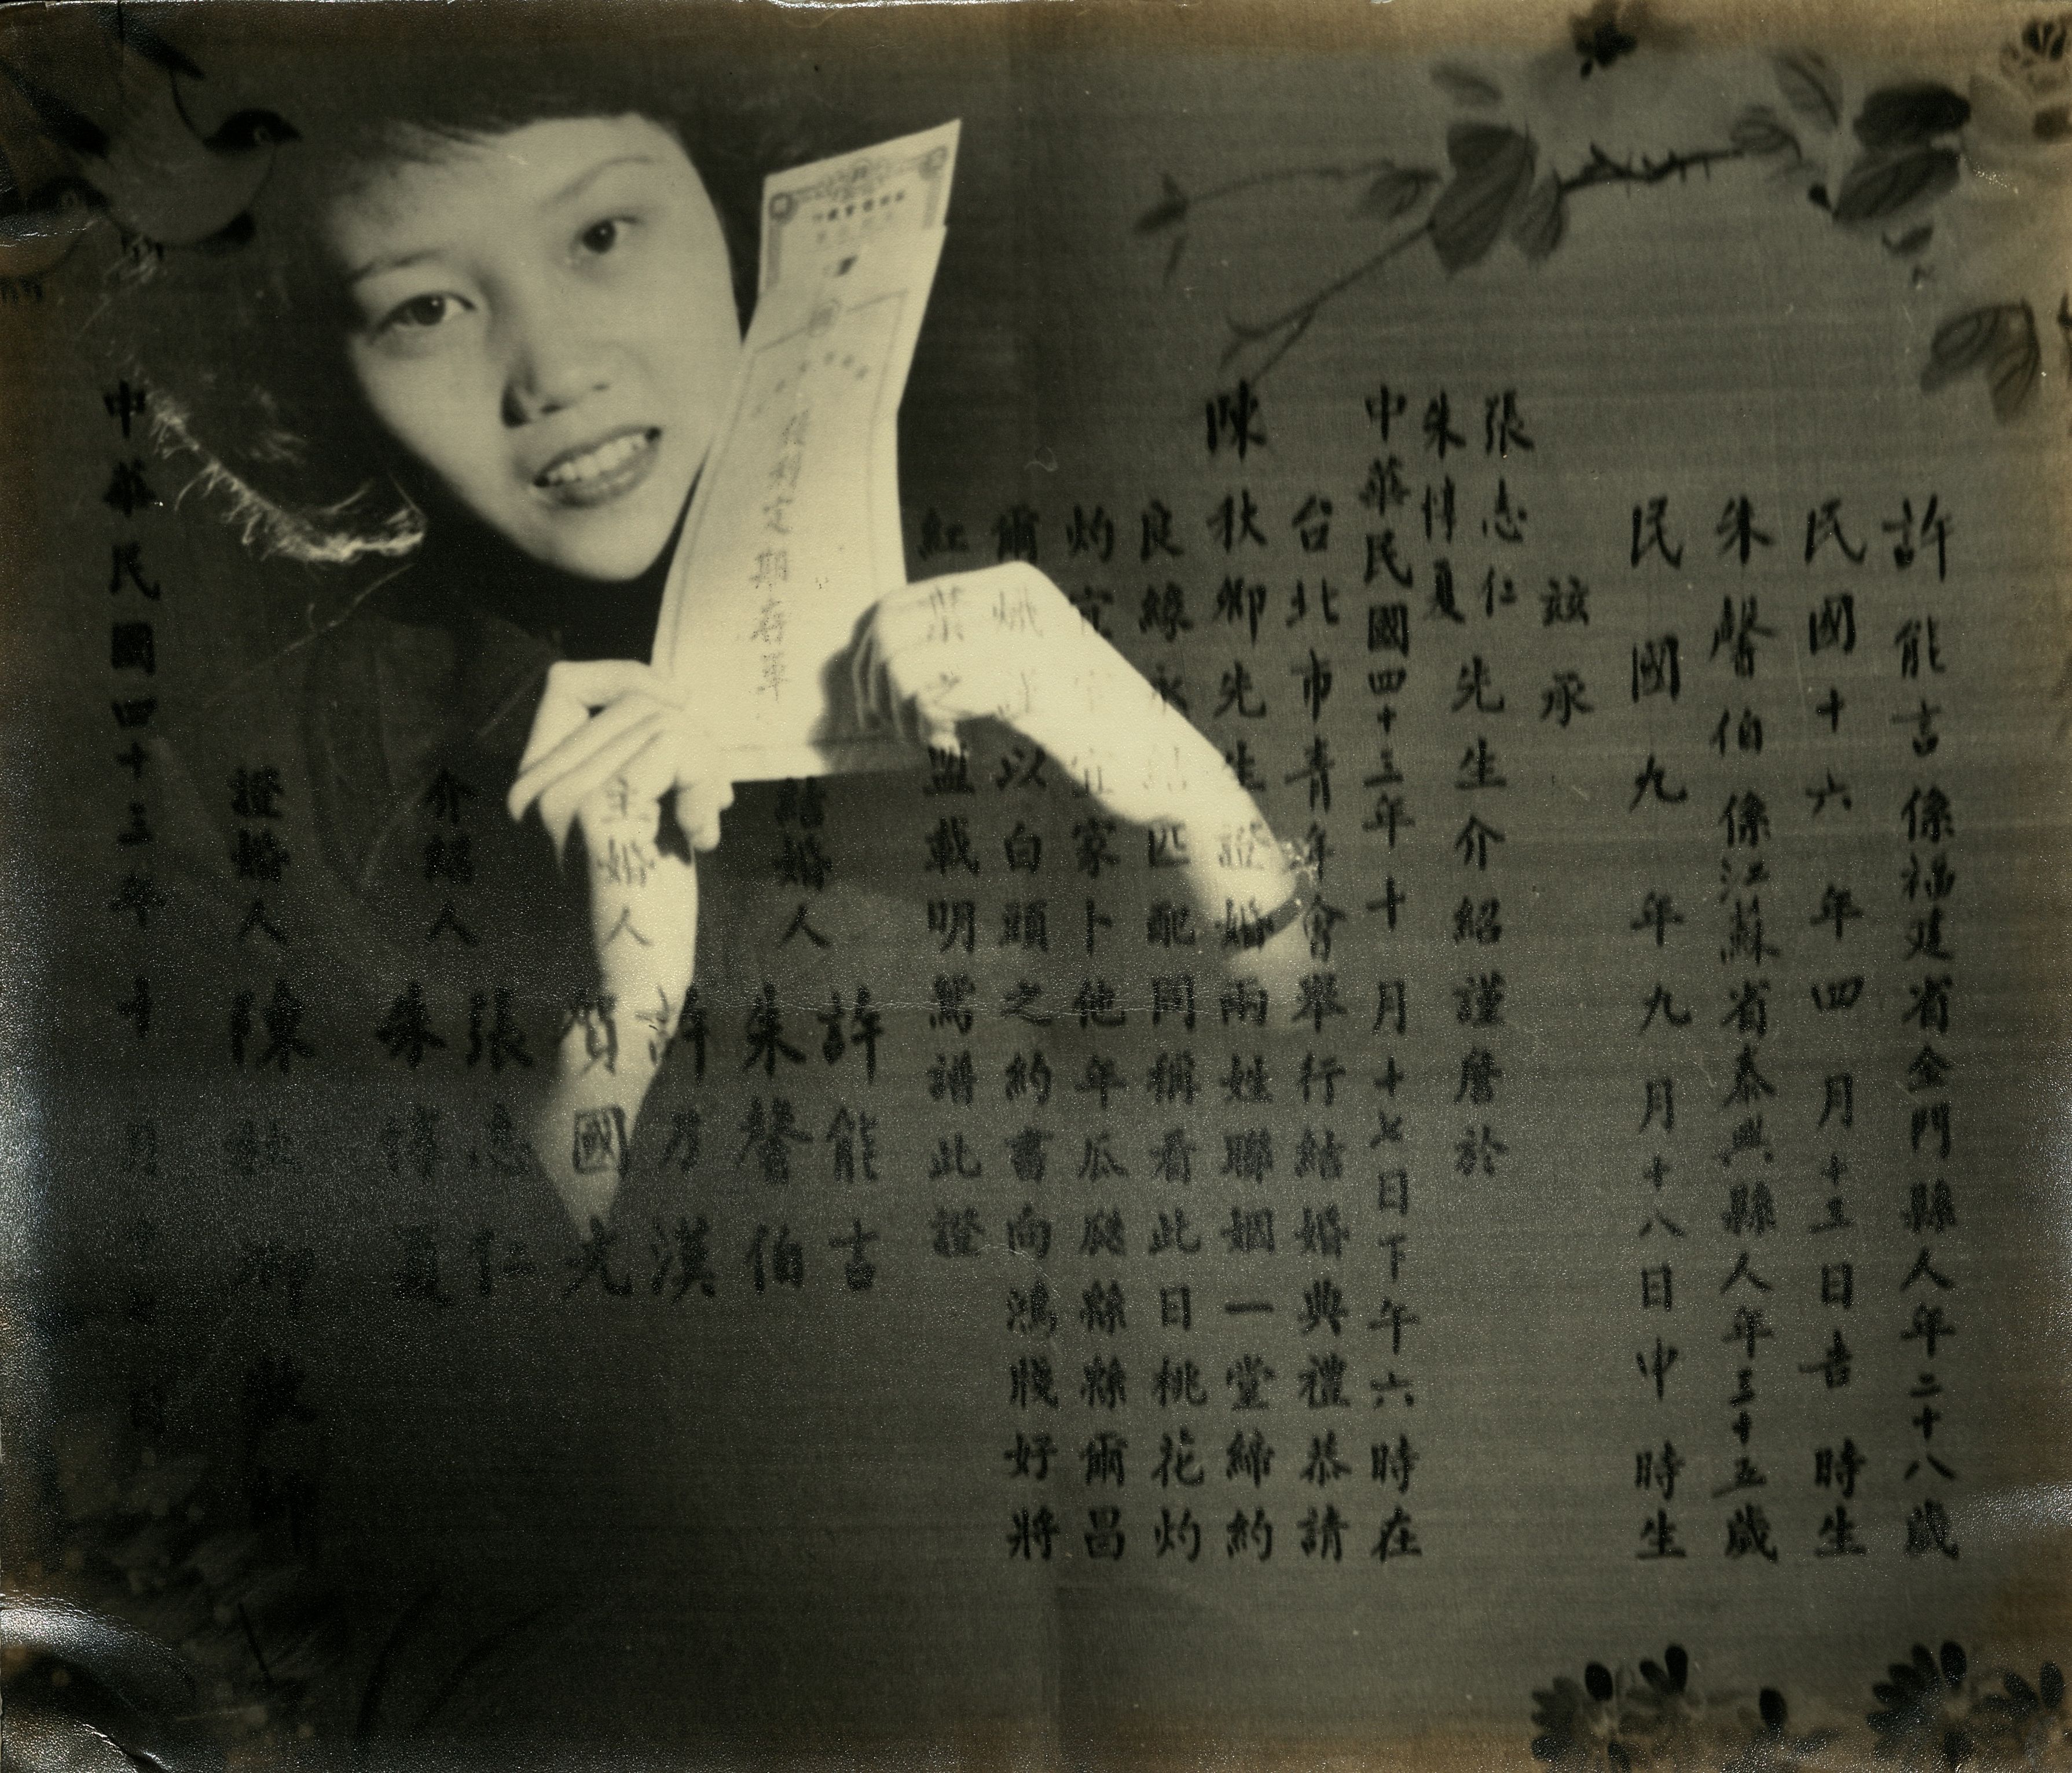 許能吉係福建省金門縣人年二十八歲
民國十六年四月十三日吉時生
朱馨伯係江蘇省泰興縣人年三十五歲
民國九年九月十八日中時生
茲承
張志仁
朱惇夏
先生介紹謹詹於
中華民國四十三年十月十七日下午六時在
台北市青年會舉行結婚典禮恭請
陳秋卿先生證婚兩姓聯姻一堂締約
良緣永結匹配同稱看此日桃花灼
灼宜室宜家卜他年瓜瓞綿綿爾昌
爾熾謹以白頭之約書向鴻牋好將
紅葉之盟載明鴛譜此證
結婚人
許能吉
朱馨伯
主婚人
許乃漢
賀國光
介紹人
張志仁
朱惇夏
證婚人
陳秋卿
中華民國四十三年十月
期存單